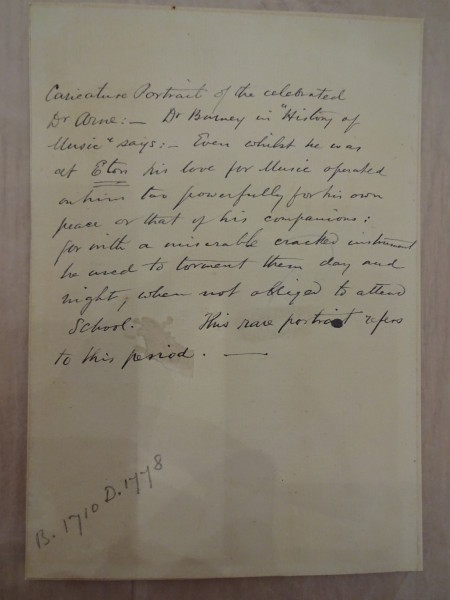 Caricature Portrait of the celebrated
Dr Arne:— Dr Burney in "History of
Music" says:— Even whilst he was
at Eton his love for Music operated
on him too powerfully for his own
peace or that of his companions:
for with a miserable cracked instrument
he used to torment them day and
night, when not obliged to attend
School. This rare portrait refers
to this period. —
B. 1710 D. 1778